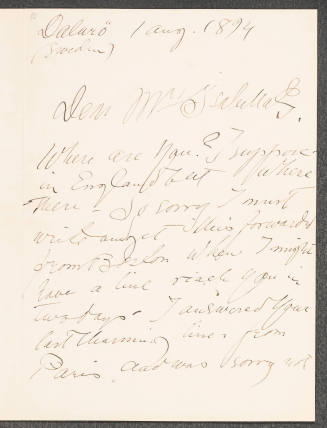 Dalarö 1 aug. 1894
(Sweden)
Dear Mrs Isabella
Where are you? I suppose
in England but where
there – So sorry I must
write and get this forwarded
from Boston when I might
have a line reach you in
two days. I answered your
last charming lines from
Paris and was sorry not